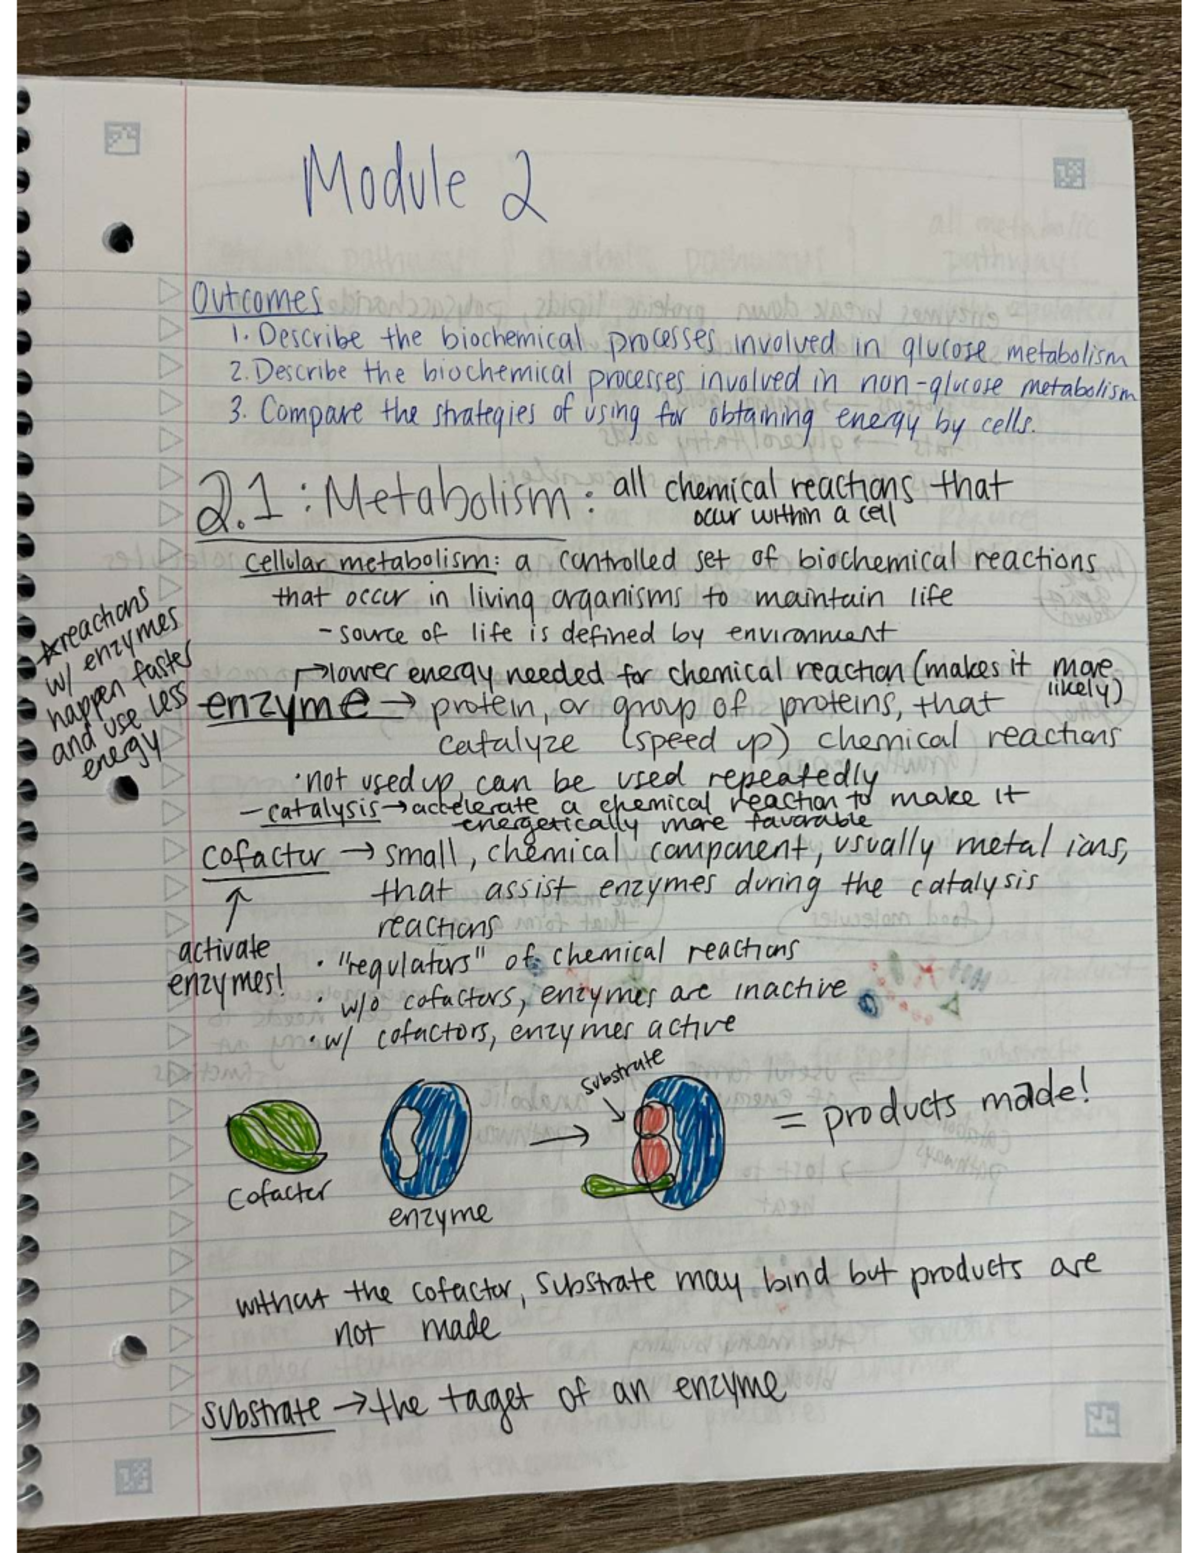 Module 2
Outcomes
1. Describe the biochemical processes involved in glucose metabolism
2. Describe the biochemical processes involved in non-glucose metabolism
3. Compare the strategies of using for obtaining energy by cells.
2.1: Metabolism: all chemical reactions that
occur within a cell
cellular metabolism: a controlled set of biochemical reactions
that occur in living organisms to maintain life
- source of life is defined by environment
☆reactions
w/ enzymes
happen faster
and use less
energy
↱lower energy needed for chemical reaction (makes it more
likely)
enzyme → protein, or group of proteins, that
catalyze (speed up) chemical reactions
·not used up, can be used repeatedly
- catalysis → accelerate a chemical reaction to make it
energetically more favorable
cofactor → small, chemical component, usually metal ions,
that assist enzymes during the catalysis
reactions
↑
activate
enzymes!
· "regulators" of chemical reactions
· w/o cofactors, enzymes are inactive
· w/ cofactors, enzymes active
substrate
cofactor
enzyme
→
= products made!
without the cofactor, substrate may bind but products are
not made
substrate → the target of an enzyme